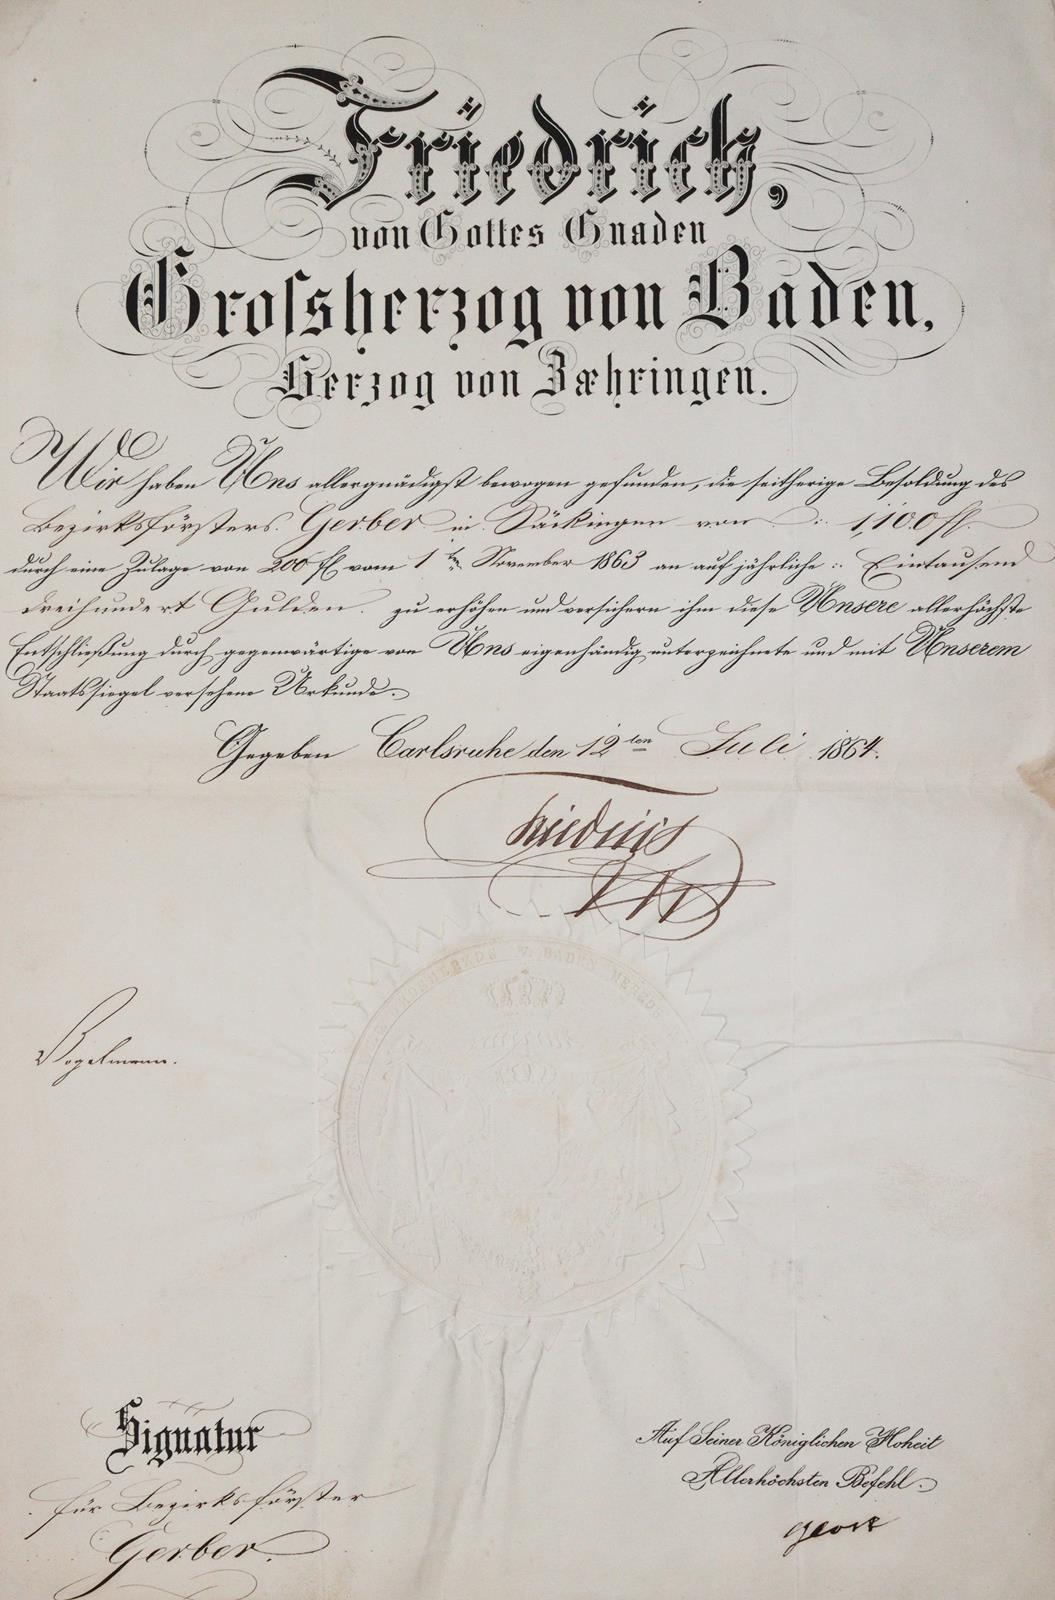 Friedrich,
von Gottes Gnaden
Grossherzog von Baden,
Herzog von Zæhringen.
Wir haben Uns allergnädigst bewogen gefunden, die seitherige Besoldung des
Bezirksförsters Gerber in Säckingen von 1,100 fl.
durch eine Zulage von 200 fl vom 1ten November 1863 an auf jährliche Eintausend
dreihundert Gulden. zu erhöhen und versichern ihm diese Unsere allerhöchste
Entschließung durch gegenwärtige von Uns eigenhändig unterzeichnete und mit Unserem
Staatssiegel versehene Urkunde.
Gegeben Carlsruhe den 12ten Juli 1864.
Friedrich
GROSHERZOG V. BADEN HERZOG
Vogelmann.
Signatur
für Bezirksförster
Gerber.
Auf Seiner Königlichen Hoheit
Allerhöchsten Befehl.